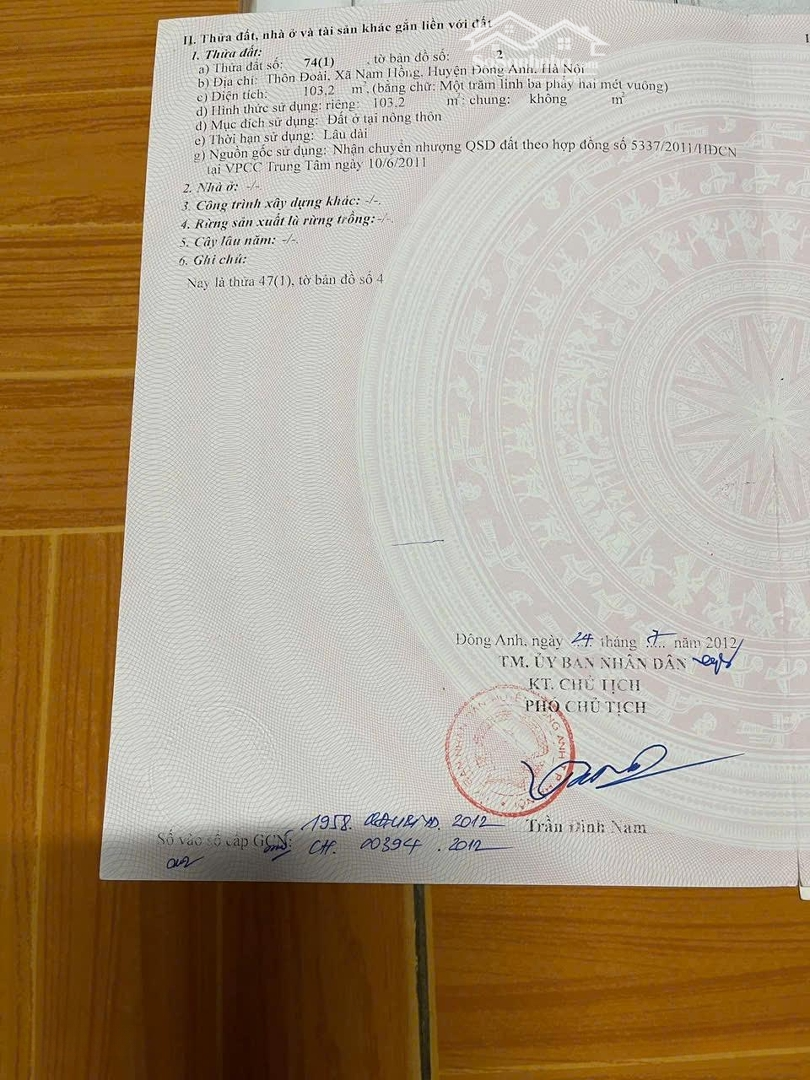 II. Thửa đất, nhà ở và tài sản khác gắn liền với đất
1. Thửa đất:
a) Thửa đất số: 74(1) , tờ bản đồ số: 2
b) Địa chỉ: Thôn Đoài, Xã Nam Hồng, Huyện Đông Anh, Hà Nội
c) Diện tích: 103,2 m², (bằng chữ: Một trăm linh ba phảy hai mét vuông)
d) Hình thức sử dụng: riêng: 103,2 m²: chung: không m²
đ) Mục đích sử dụng: Đất ở tại nông thôn
e) Thời hạn sử dụng: Lâu dài
g) Nguồn gốc sử dụng: Nhận chuyển nhượng QSD đất theo hợp đồng số 5337/2011/HĐCN
tại VPCC Trung Tâm ngày 10/6/2011
2. Nhà ở: -/-.
3. Công trình xây dựng khác: -/-.
4. Rừng sản xuất là rừng trồng: -/-.
5. Cây lâu năm: -/-.
6. Ghi chú:
Nay là thửa 47(1), tờ bản đồ số 4
Đông Anh, ngày 24 tháng 7 năm 2012
TM. ỦY BAN NHÂN DÂN
KT. CHỦ TỊCH
PHÓ CHỦ TỊCH
Trần Đình Nam
1958. 2012
Số vào sổ cấp GCN: CH. 00394 . 2012